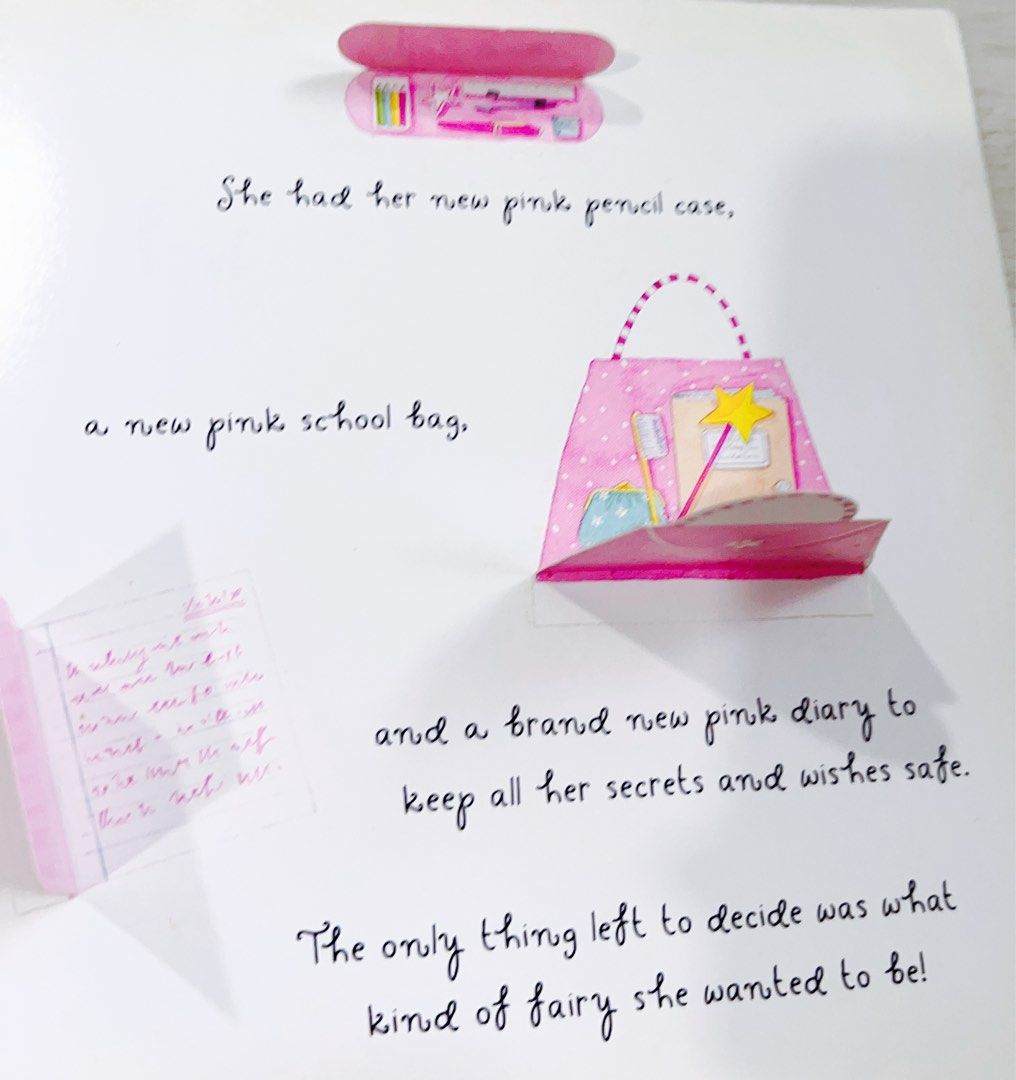 She had her new pink pencil case,
a new pink school bag,
and a brand new pink diary to
keep all her secrets and wishes safe.
The only thing left to decide was what
kind of fairy she wanted to be!